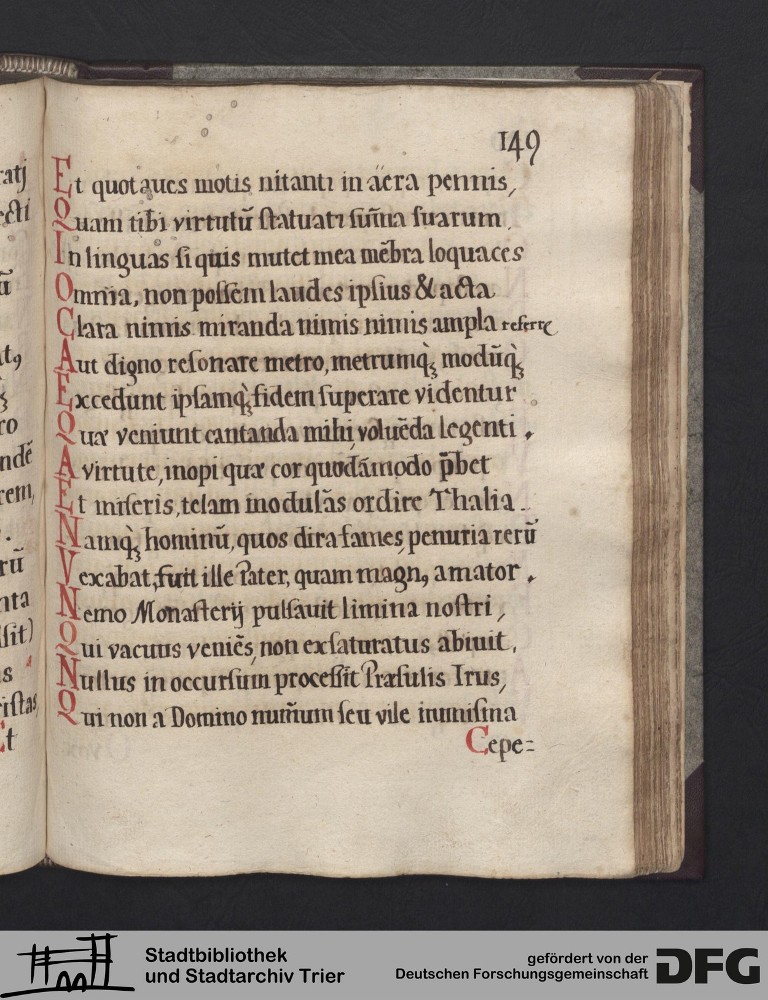 149
Et quot aues motis nitanti in aëra pennis,
Quam tibi virtutū statuati sum̄a suarum.
In linguas si quis mutet mea mēbra loquaces
Omnia, non possem laudes ipsius & acta
Clara nimis miranda nimis nimis ampla referre
Aut digno resonare metro, metrumq; modūq;
Excedunt ipsamq; fidem superare videntur
Quæ veniunt cantanda mihi, voluēda legenti.
A virtute, inopi quæ cor quodāmodo p̄bet
Et miseris, telam modulās ordire Thalia.
Namq; hominū, quos dira fames, penuria rerū
Vexabat, fuit ille Pater, quam magn9 amator.
Nemo Monasterij pulsauit limina nostri,
Qui vacuus veniēs, non exsaturatus abiuit.
Nullus in occursum processit Præsulis Irus,
Qui non a Domino num̄um seu vile
Cepe=
ratj
ecti
ū
at9
ro
ndē
rem,
rū
nta
ssit)
is
ristas
Et
Stadtbibliothek
und Stadtarchiv Trier
gefördert von der
Deutschen Forschungsgemeinschaft
DFG